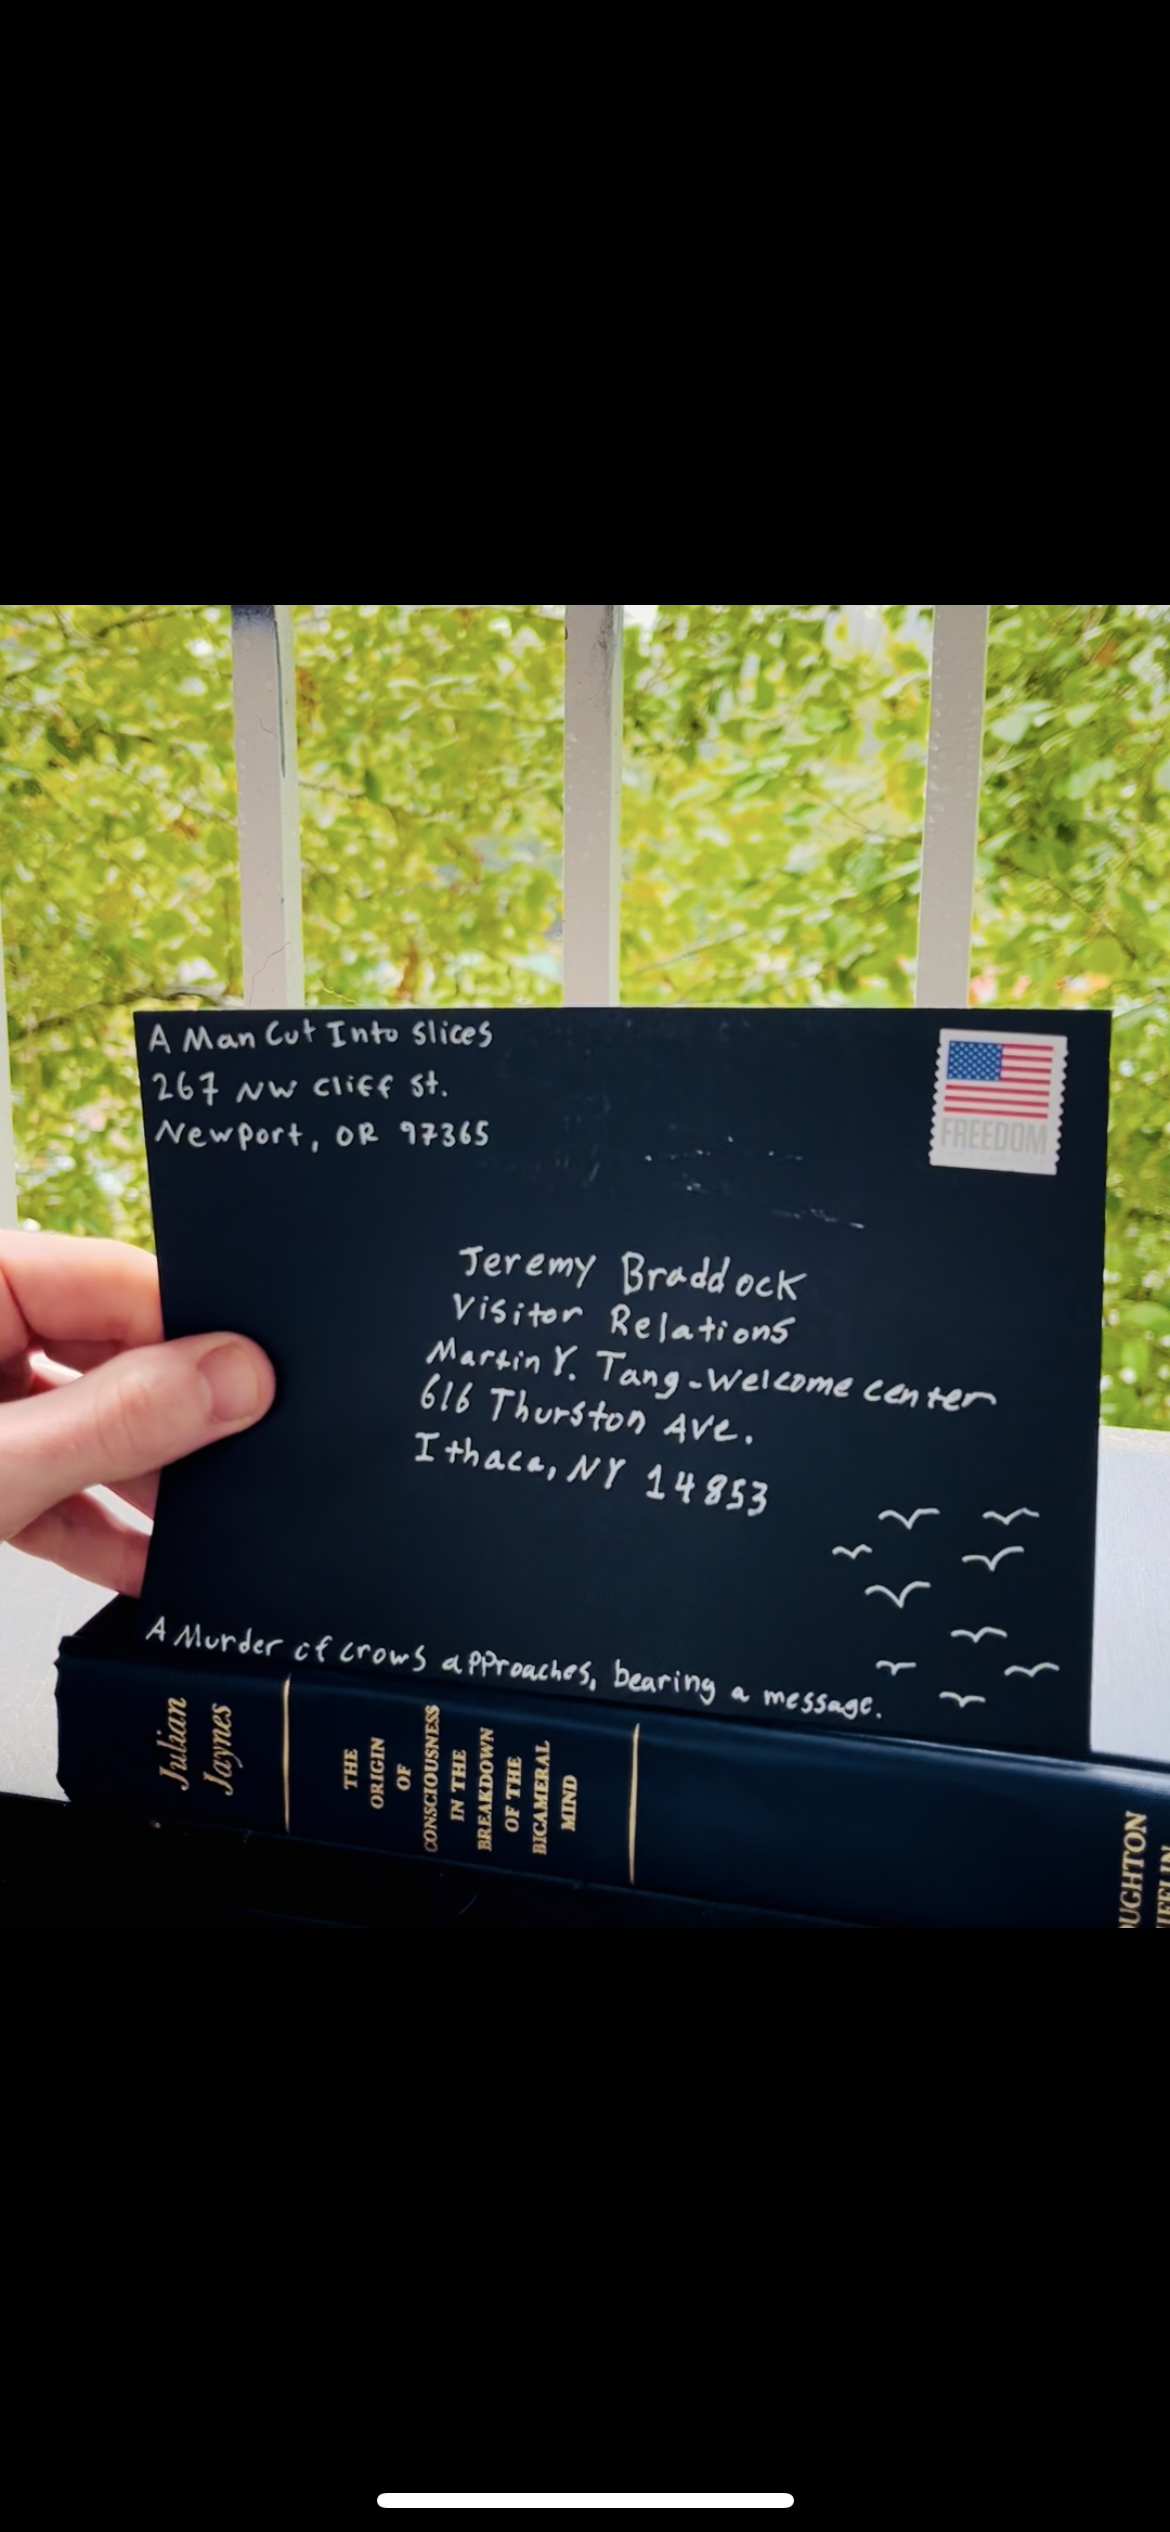 A Man Cut Into Slices
267 NW Cliff St.
Newport, OR 97365
FREEDOM
Jeremy Braddock
Visitor Relations
Martin Y. Tang-Welcome center
616 Thurston Ave.
Ithaca, NY 14853
A Murder of crows approaches, bearing a message.
Julian
Jaynes
THE
ORIGIN
OF
CONSCIOUSNESS
IN THE
BREAKDOWN
OF THE
BICAMERAL
MIND